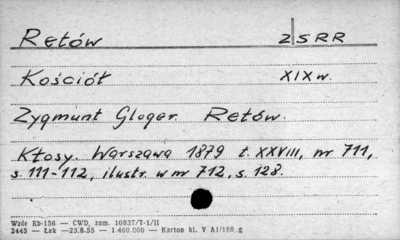 Retów Z|SRR
Kościół XIX w.
Zygmunt Gloger. Retów.
Kłosy. Warszawa 1879 t. XXVIII, nr 711,
s. 111-112, ilustr. w nr 712, s. 128.
Wzór Kb-156 — CWD, zam. 10837/T-1/II
2445 — Łsk —23.8.55 — 1.460.000 — Karton kl. V A1/180 g